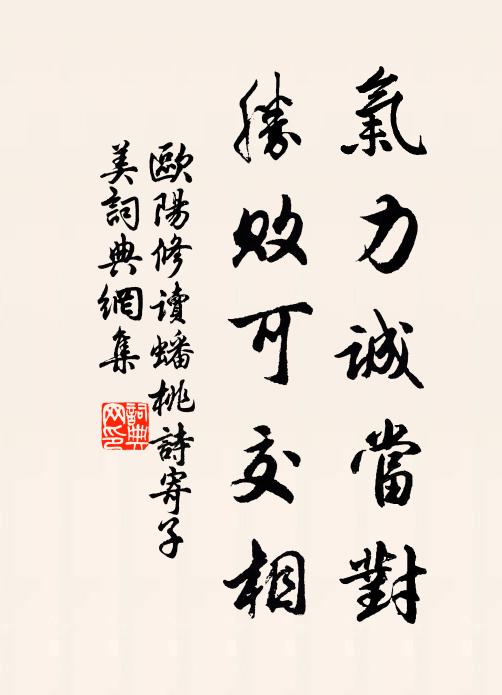 氣力誠當對
勝敗可交相
歐陽修讀蟠桃詩寄子
美詞典網集
詞典
网印